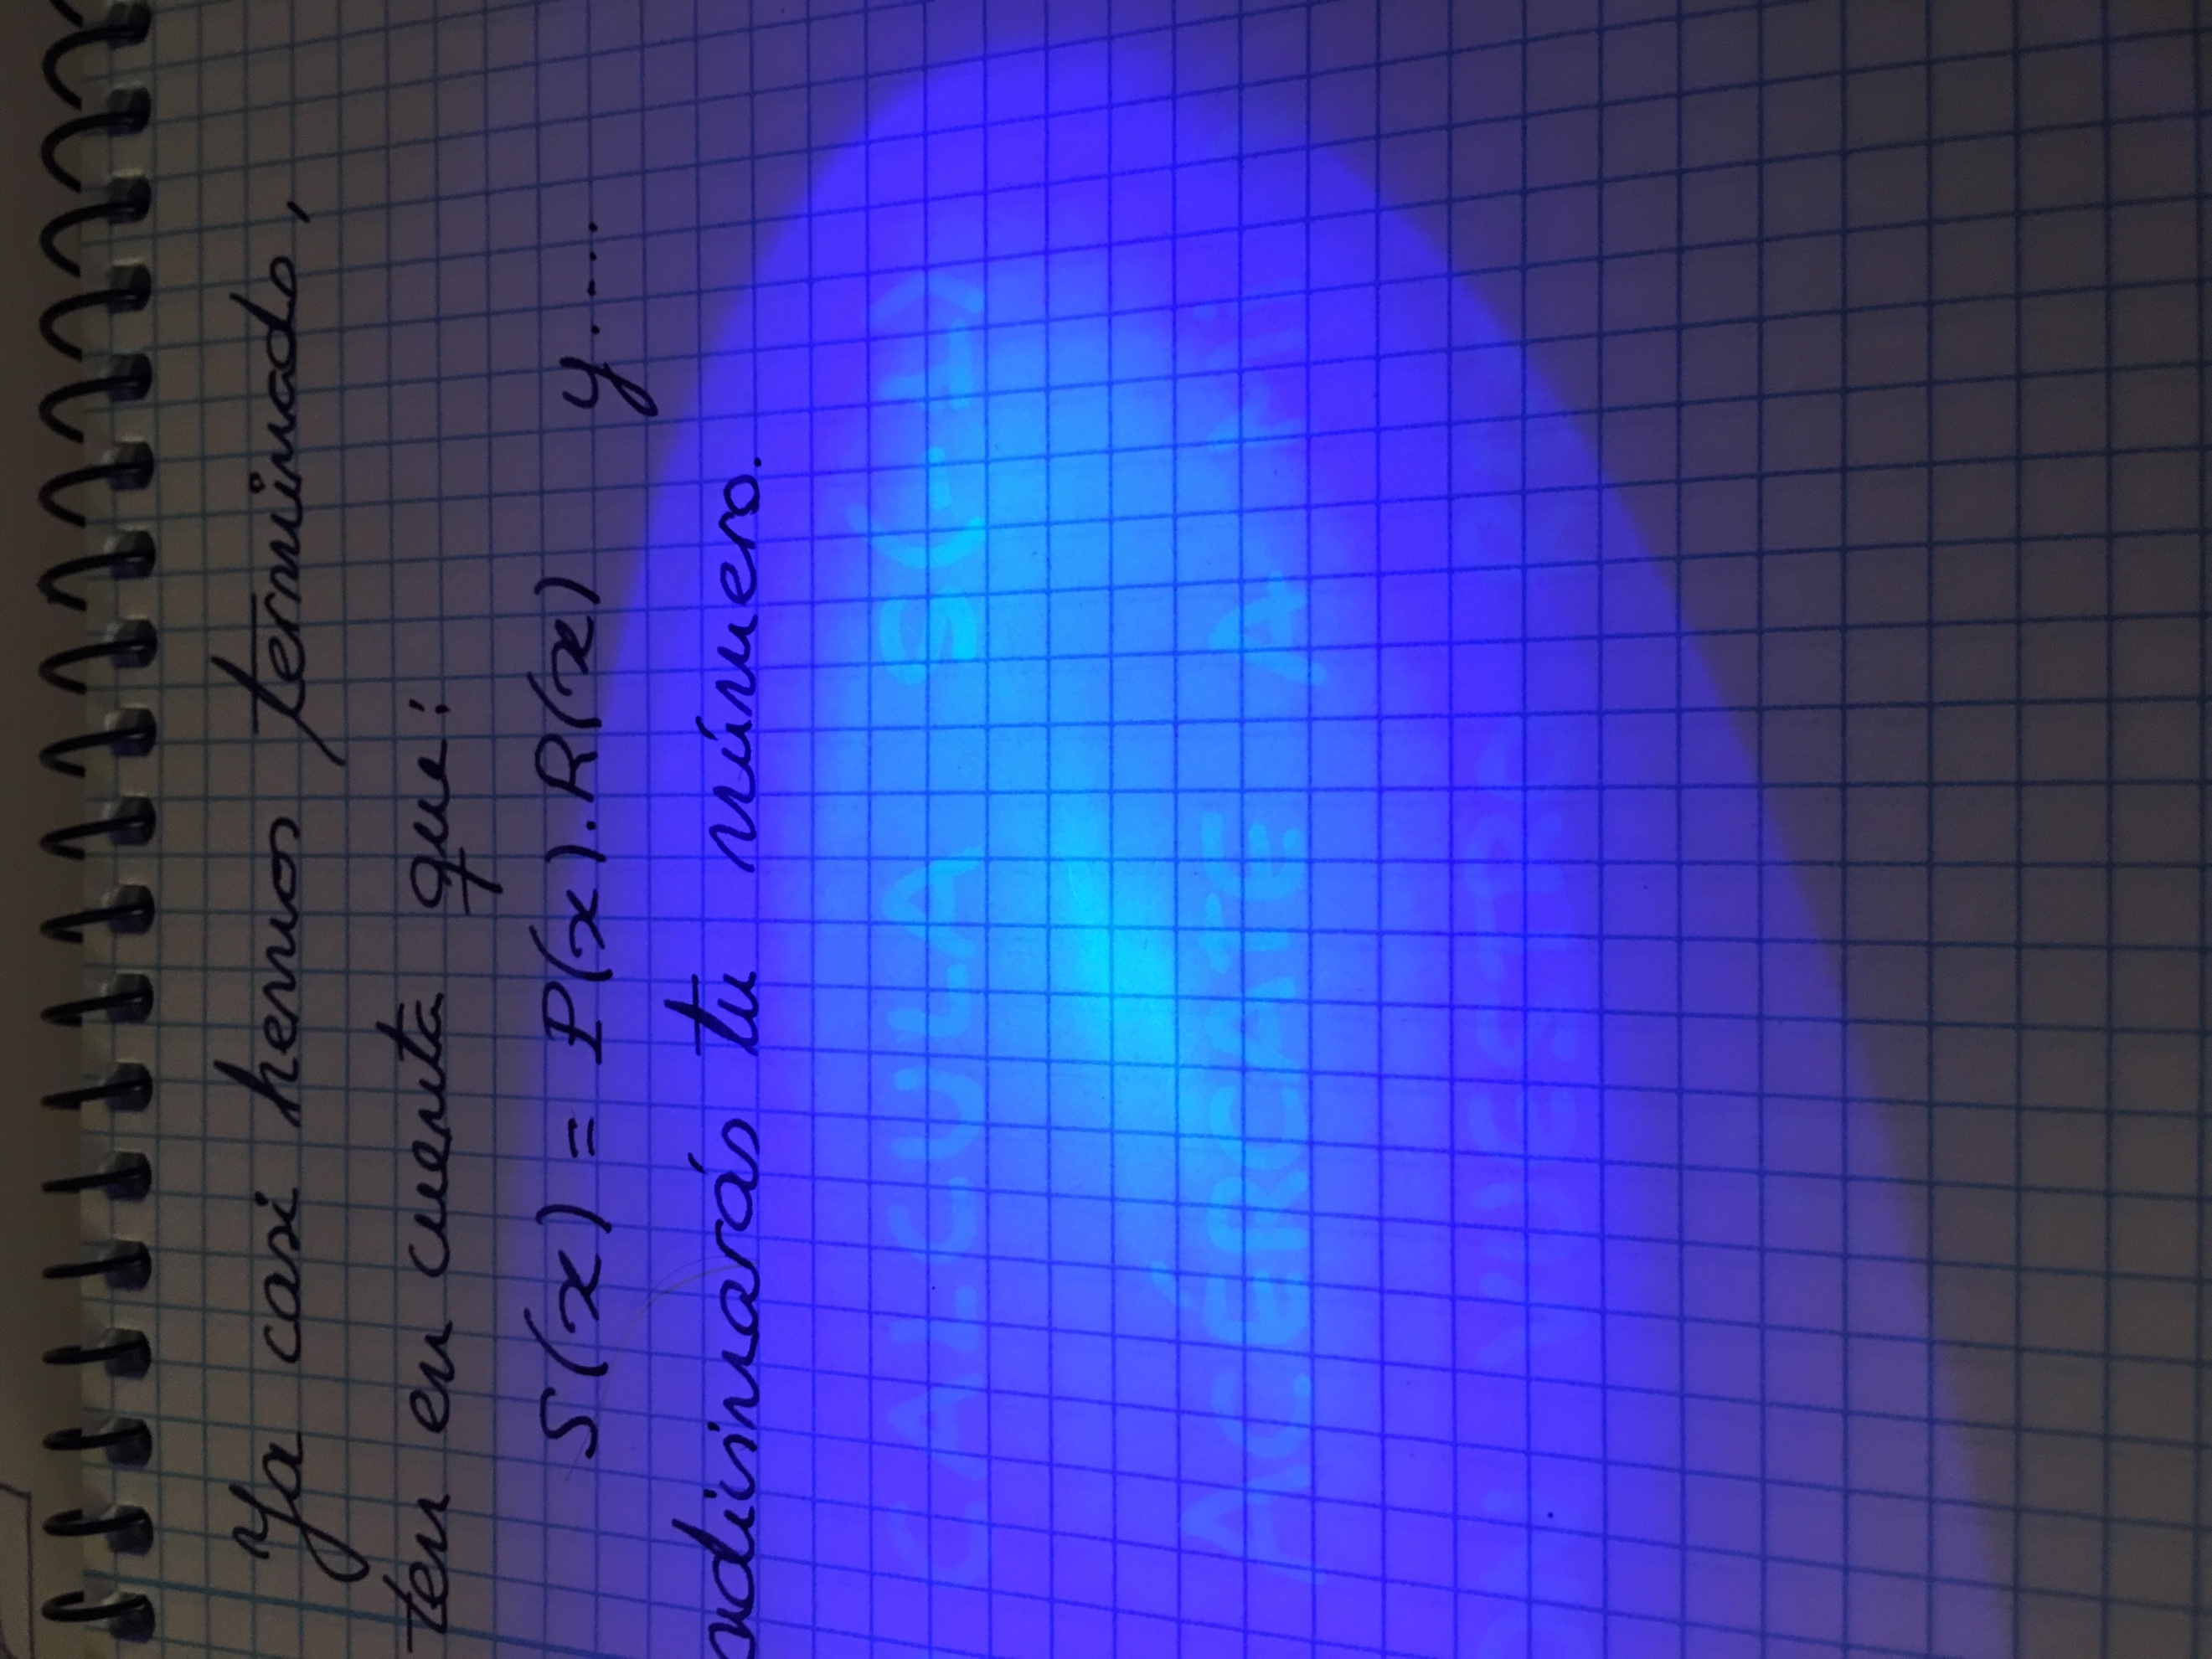 Ya casi hemos terminado,
ten en cuenta que:
S(x) = P(x).R(x) y.....
adivinarás tu número.
CALCULA S(-1)
ACÉRCATE A MI